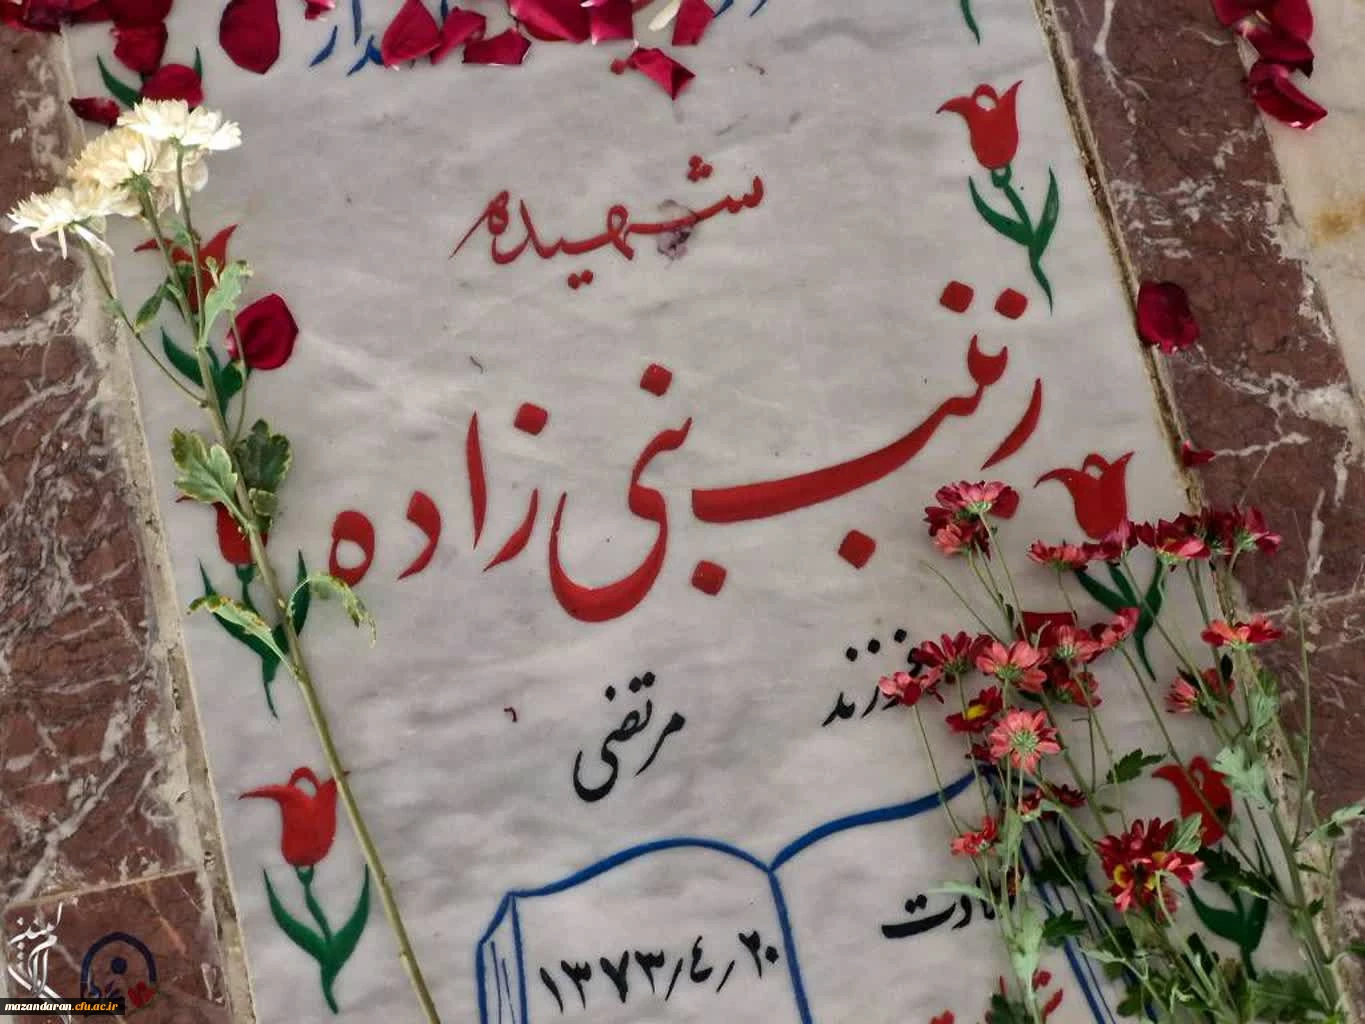 شهیده
زینب نبی زاده
فرزند
مرتضی
۱۳۷۳/۴/۲۰
mazandaran.cfu.ac.ir